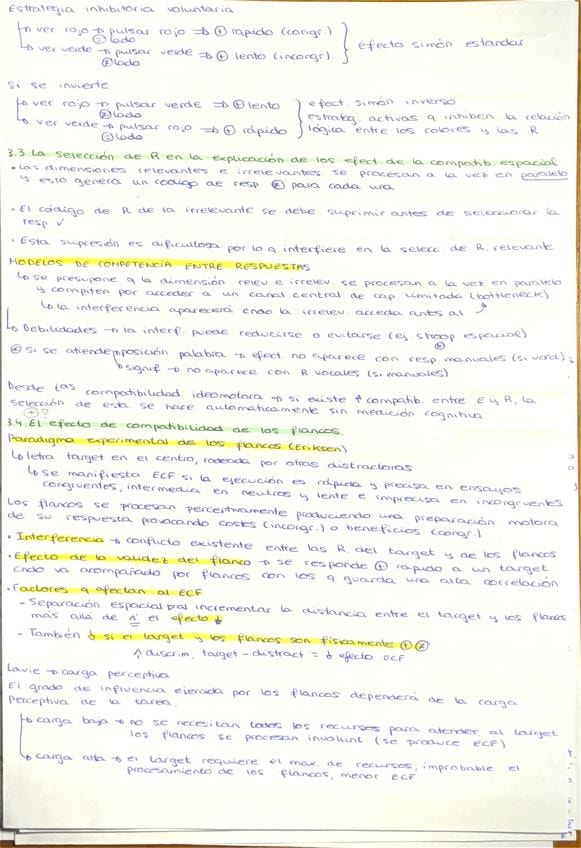 Estrategia inhibitoria voluntaria
↳ ver rojo → pulsar rojo ⇒ ⊕ rápido (congr.)
⊜ lado
↳ ver verde → pulsar verde ⇒ ⊕ lento (incongr).
≠ lado
efecto simón estandar
Si se invierte
↳ ver rojo → pulsar verde ⇒ ⊕ lento
≠ lado
↳ ver verde → pulsar rojo ⇒ ⊕ rápido
⊜ lado
efect. simón inverso
estrateg. activas q inhiben la relación
lógica entre los colores y las R
3.3 La selección de R en la explicación de los efect de la compatib. espacial
• Las dimensiones relevantes e irrelevantes se procesan a la vez en paralelo
y esto genera un código de resp ≠ para cada una
• El código de R de la irrelevante se debe suprimir antes de seleccionar la
resp ✓
• Esta supresión es dificultosa por lo q interfiere en la selecc. de R. relevante
MODELOS DE COMPETENCIA ENTRE RESPUESTAS
↳ se presupone q la dimensión relev e irrelev. se procesan a la vez en paralelo
y compiten por acceder a un canal central de cap. limitada (bottleneck)
↳ la interferencia aparecerá cndo la irrelev. acceda antes al
↳ Debilidades → la interf. puede reducirse o evitarse (ej stroop espacial)
≠ Si se atiende posición palabra → efect. no aparece con resp manuales (si voral);
signif → no aparece con R vocales (si manuales)
Desde las compatibilidad ideomotora → si existe ↑ compatib. entre E y R, la
selección de esta se hace automaticamente sin medición cognitiva
⊕?
3.4. El efecto de compatibilidad de los flancos.
Paradigma experimental de los flancos (Eriksen)
↳ letra target en el centro, rodeada por otras distractoras
↳ se manifiesta ECF si la ejecución es rápida y precisa en ensayos
congruentes, intermedia en neutros y lente e imprecisa en incongruentes
Los flancos se procesan perceptivamente produciendo una preparación motora
de su respuesta provocando costes (incongr.) o beneficios (congr.)
• Interferencia → conflicto existente entre las R. del target y de los flancos
• Efecto de la validez del flanco → se responde ⊕ rápido a un target
cndo va acompañado por flancos con los q guarda una alta correlación
• Factores q afectan al ECF
- Separación espacial → al incrementar la distancia entre el target y los flancos
más allá de 1° el efecto ↓
- También ↓ si el target y los flancos son físicamente ⊕ ≠
↑ discrim. target - distract = ↓ efecto ECF
Lavie → carga perceptiva
El grado de influencia ejercida por los flancos dependerá de la carga
Perceptiva de la tarea.
↳ carga baja → no se necesitan todos los recursos para atender al target
los flancos se procesan involunt (se produce ECF)
↳ carga alta → el target requiere el max. de recursos, improbable el
procesamiento de los flancos, menor ECF